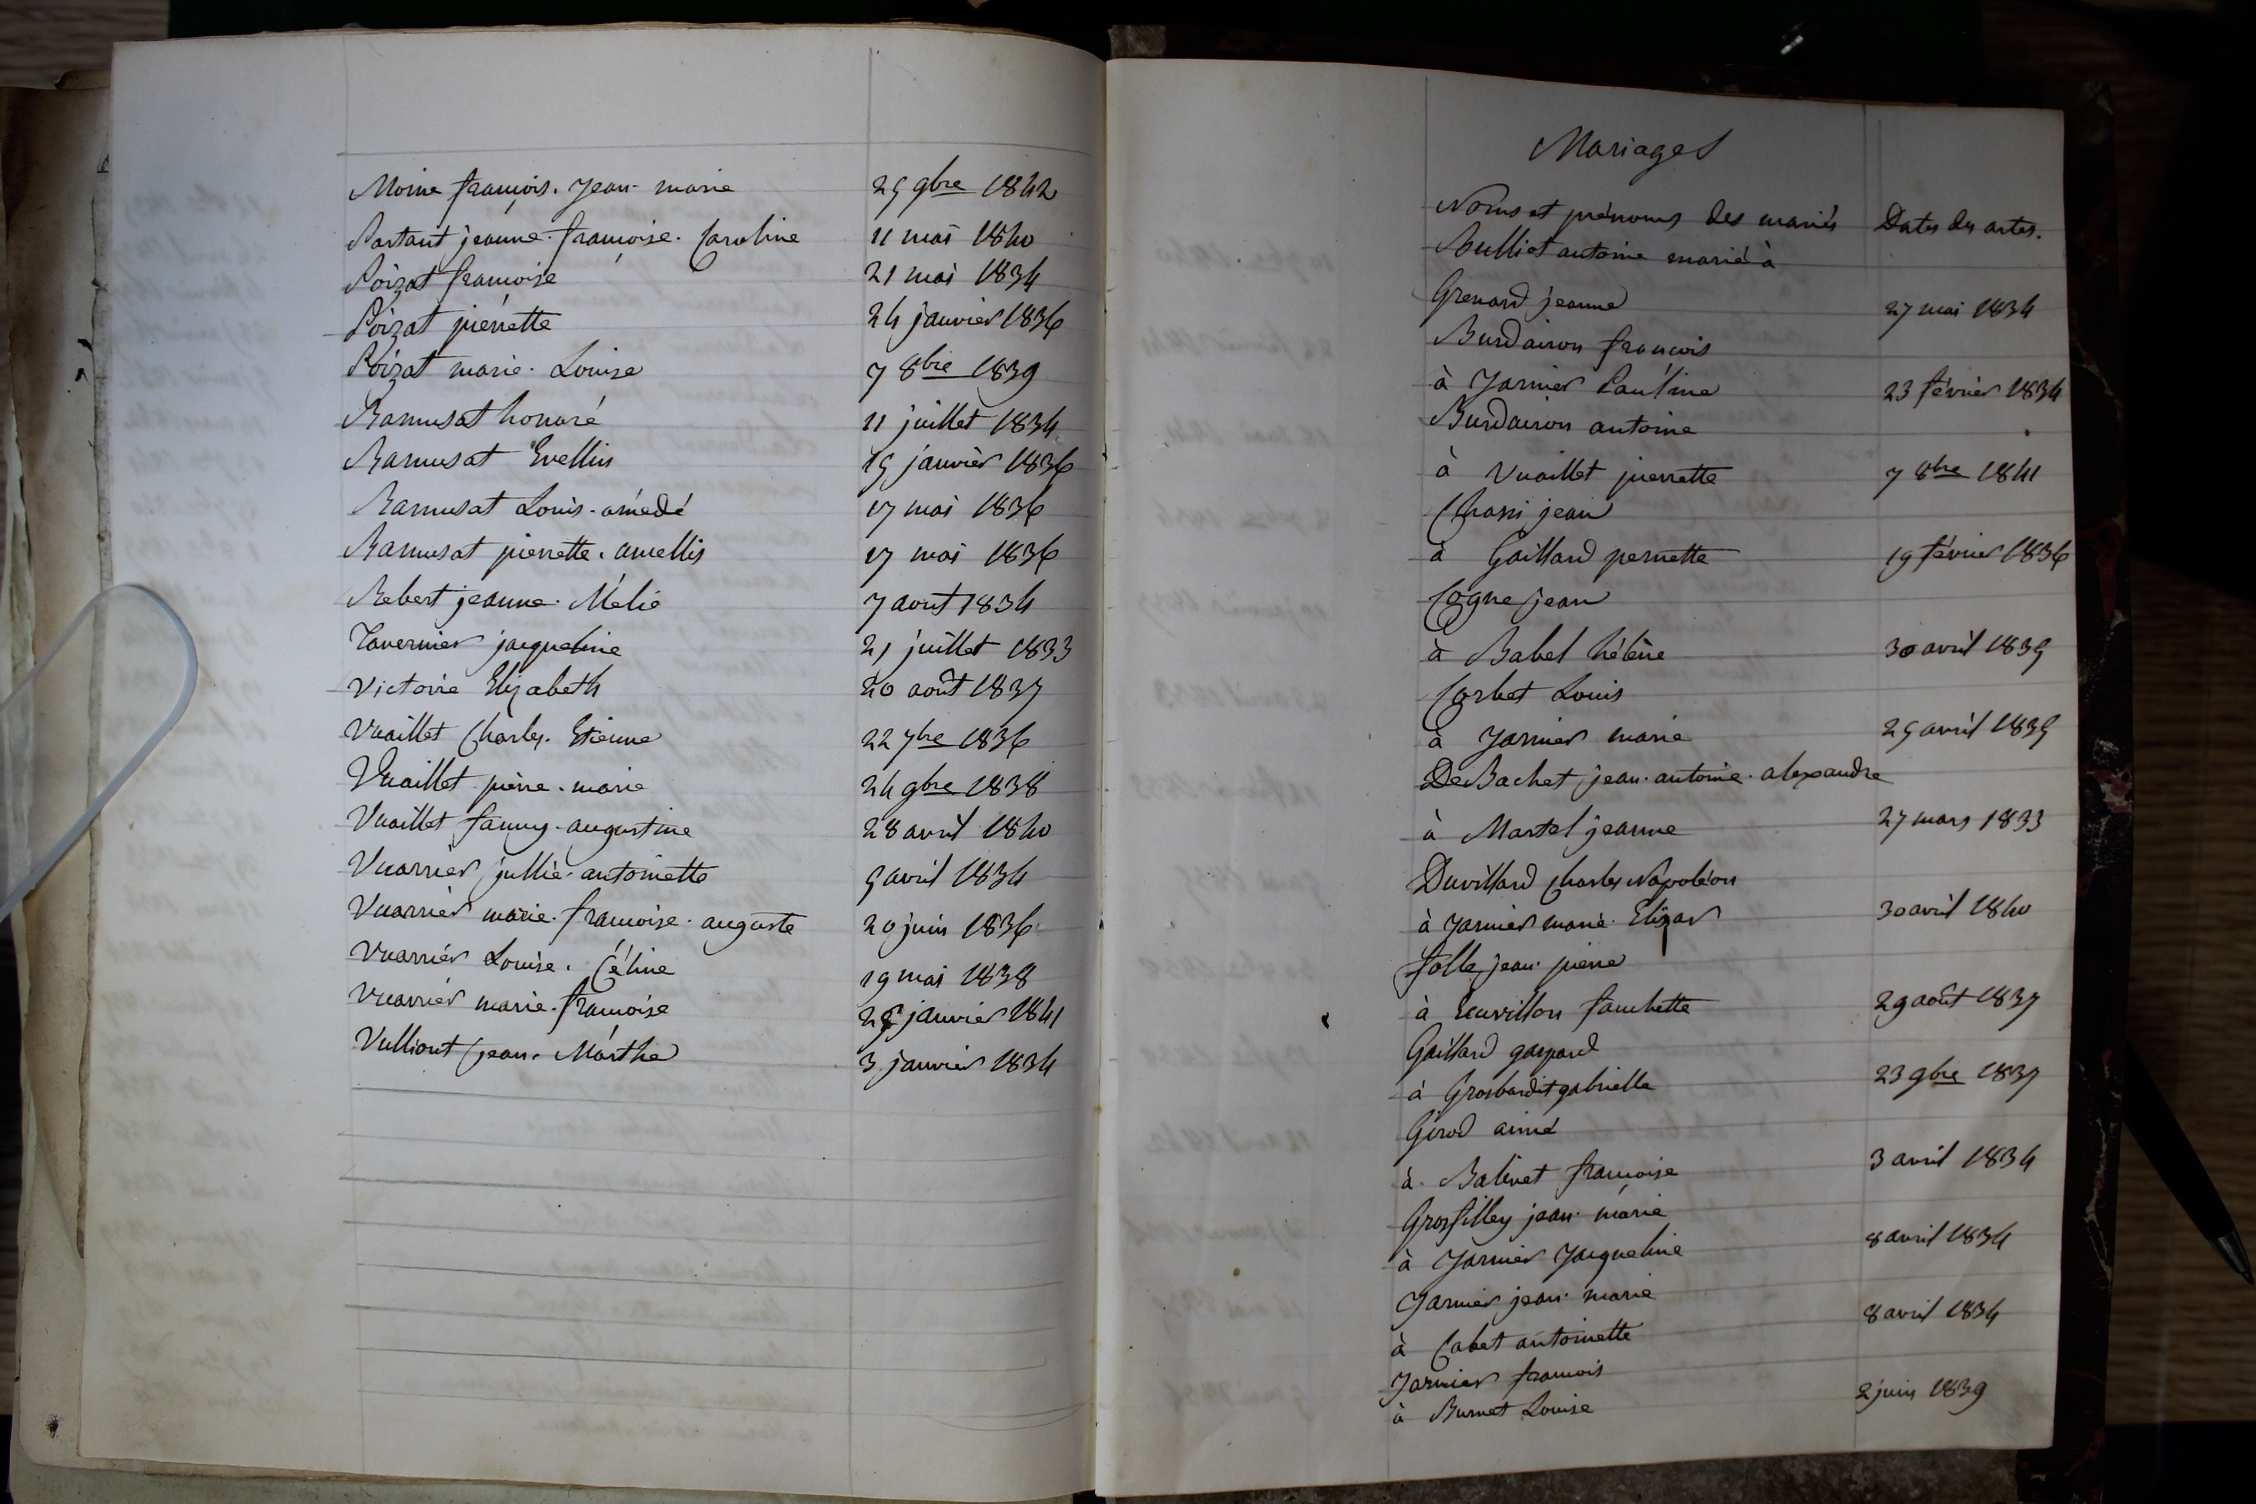 Moine françois. Jean-marie 25 9bre 1842
Portant jeanne-françoise. Caroline 11 mai 1840
Poizat françoise 21 mai 1834
Poizat pierrette 24 janvier 1836
Poizat marie. Louise 7 8bre 1839
Ramusat honoré 11 juillet 1834
Ramusat Evellin 15 janvier 1836
Ramusat Louis-amédé 17 mai 1836
Ramusat pierrette. amellis 17 mai 1836
Rebert jeanne. Mélie 7 aout 1834
Tavernier jacqueline 21 juillet 1833
Victoire Elizabeth 20 août 1837
Vuaillet Charles. Etienne 22 7bre 1836
Vuaillet pierre. marie 24 9bre 1838
Vuaillet fanny-augustine 28 avril 1840
Vuarrier jullie-antoinette 5 avril 1834
Vuarrier marie-françoise-auguste 20 juin 1836
Vuarrier Louise. Céline 19 mai 1838
Vuarrier marie-françoise janvier 1841
Vulliout jean. Marthe 3 janvier 1834
Mariages
Noms et prénoms des mariés Dates des actes.
Bulliot antoine marié à
Grenard jeanne 27 mai 1834
Burdairon françois
à Jarnier Pauline 23 février 1834
Burdairon antoine
à Vuaillet pierrette 7 8bre 1841
jean
à Gaillard pernette 19 février 1836
Cogne jean
à Babel hélène 30 avril 1835
Corbet Louis
à Jarnier marie 25 avril 1835
De Bachet jean-antoine-alexandre
à Martel jeanne 27 mars 1833
Duvillard Charles Napoléon
à Jarnier marie. Elizar 30 avril 1840
folle jean-pierre
à Ecuvillon fanchette 29 août 1837
Gaillard gaspard
à gabrielle 23 9bre 1837
Girod aimé
à Balivet françoise 3 avril 1834
Grosfilley jean-marie
à Jarnier Jacqueline 8 avril 1834
Jarnier jean-marie
à Cabet antoinette 8 avril 1834
Jarnier françois
à Burnet Louise 2 juin 1839